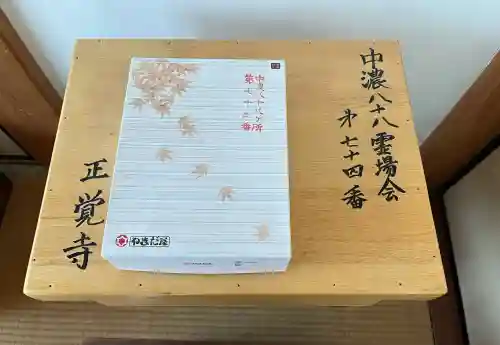 中濃八十八霊場会
第七十四番
中濃八十八ヶ所
第七十四番
やまだ屋
正覚寺